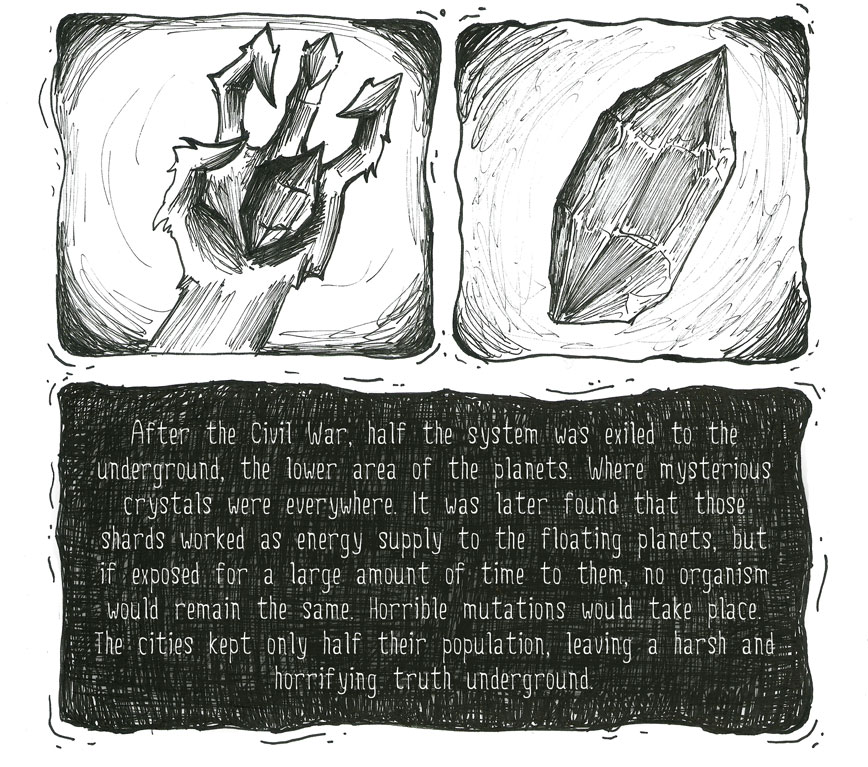 After the Civil War, half the system was exiled to the
underground, the lower area of the planets. Where mysterious
crystals were everywhere. It was later found that those
shards worked as energy supply to the floating planets, but
if exposed for a large amount of time to them, no organism
would remain the same. Horrible mutations would take place.
The cities kept only half their population, leaving a harsh and
horrifying truth underground.